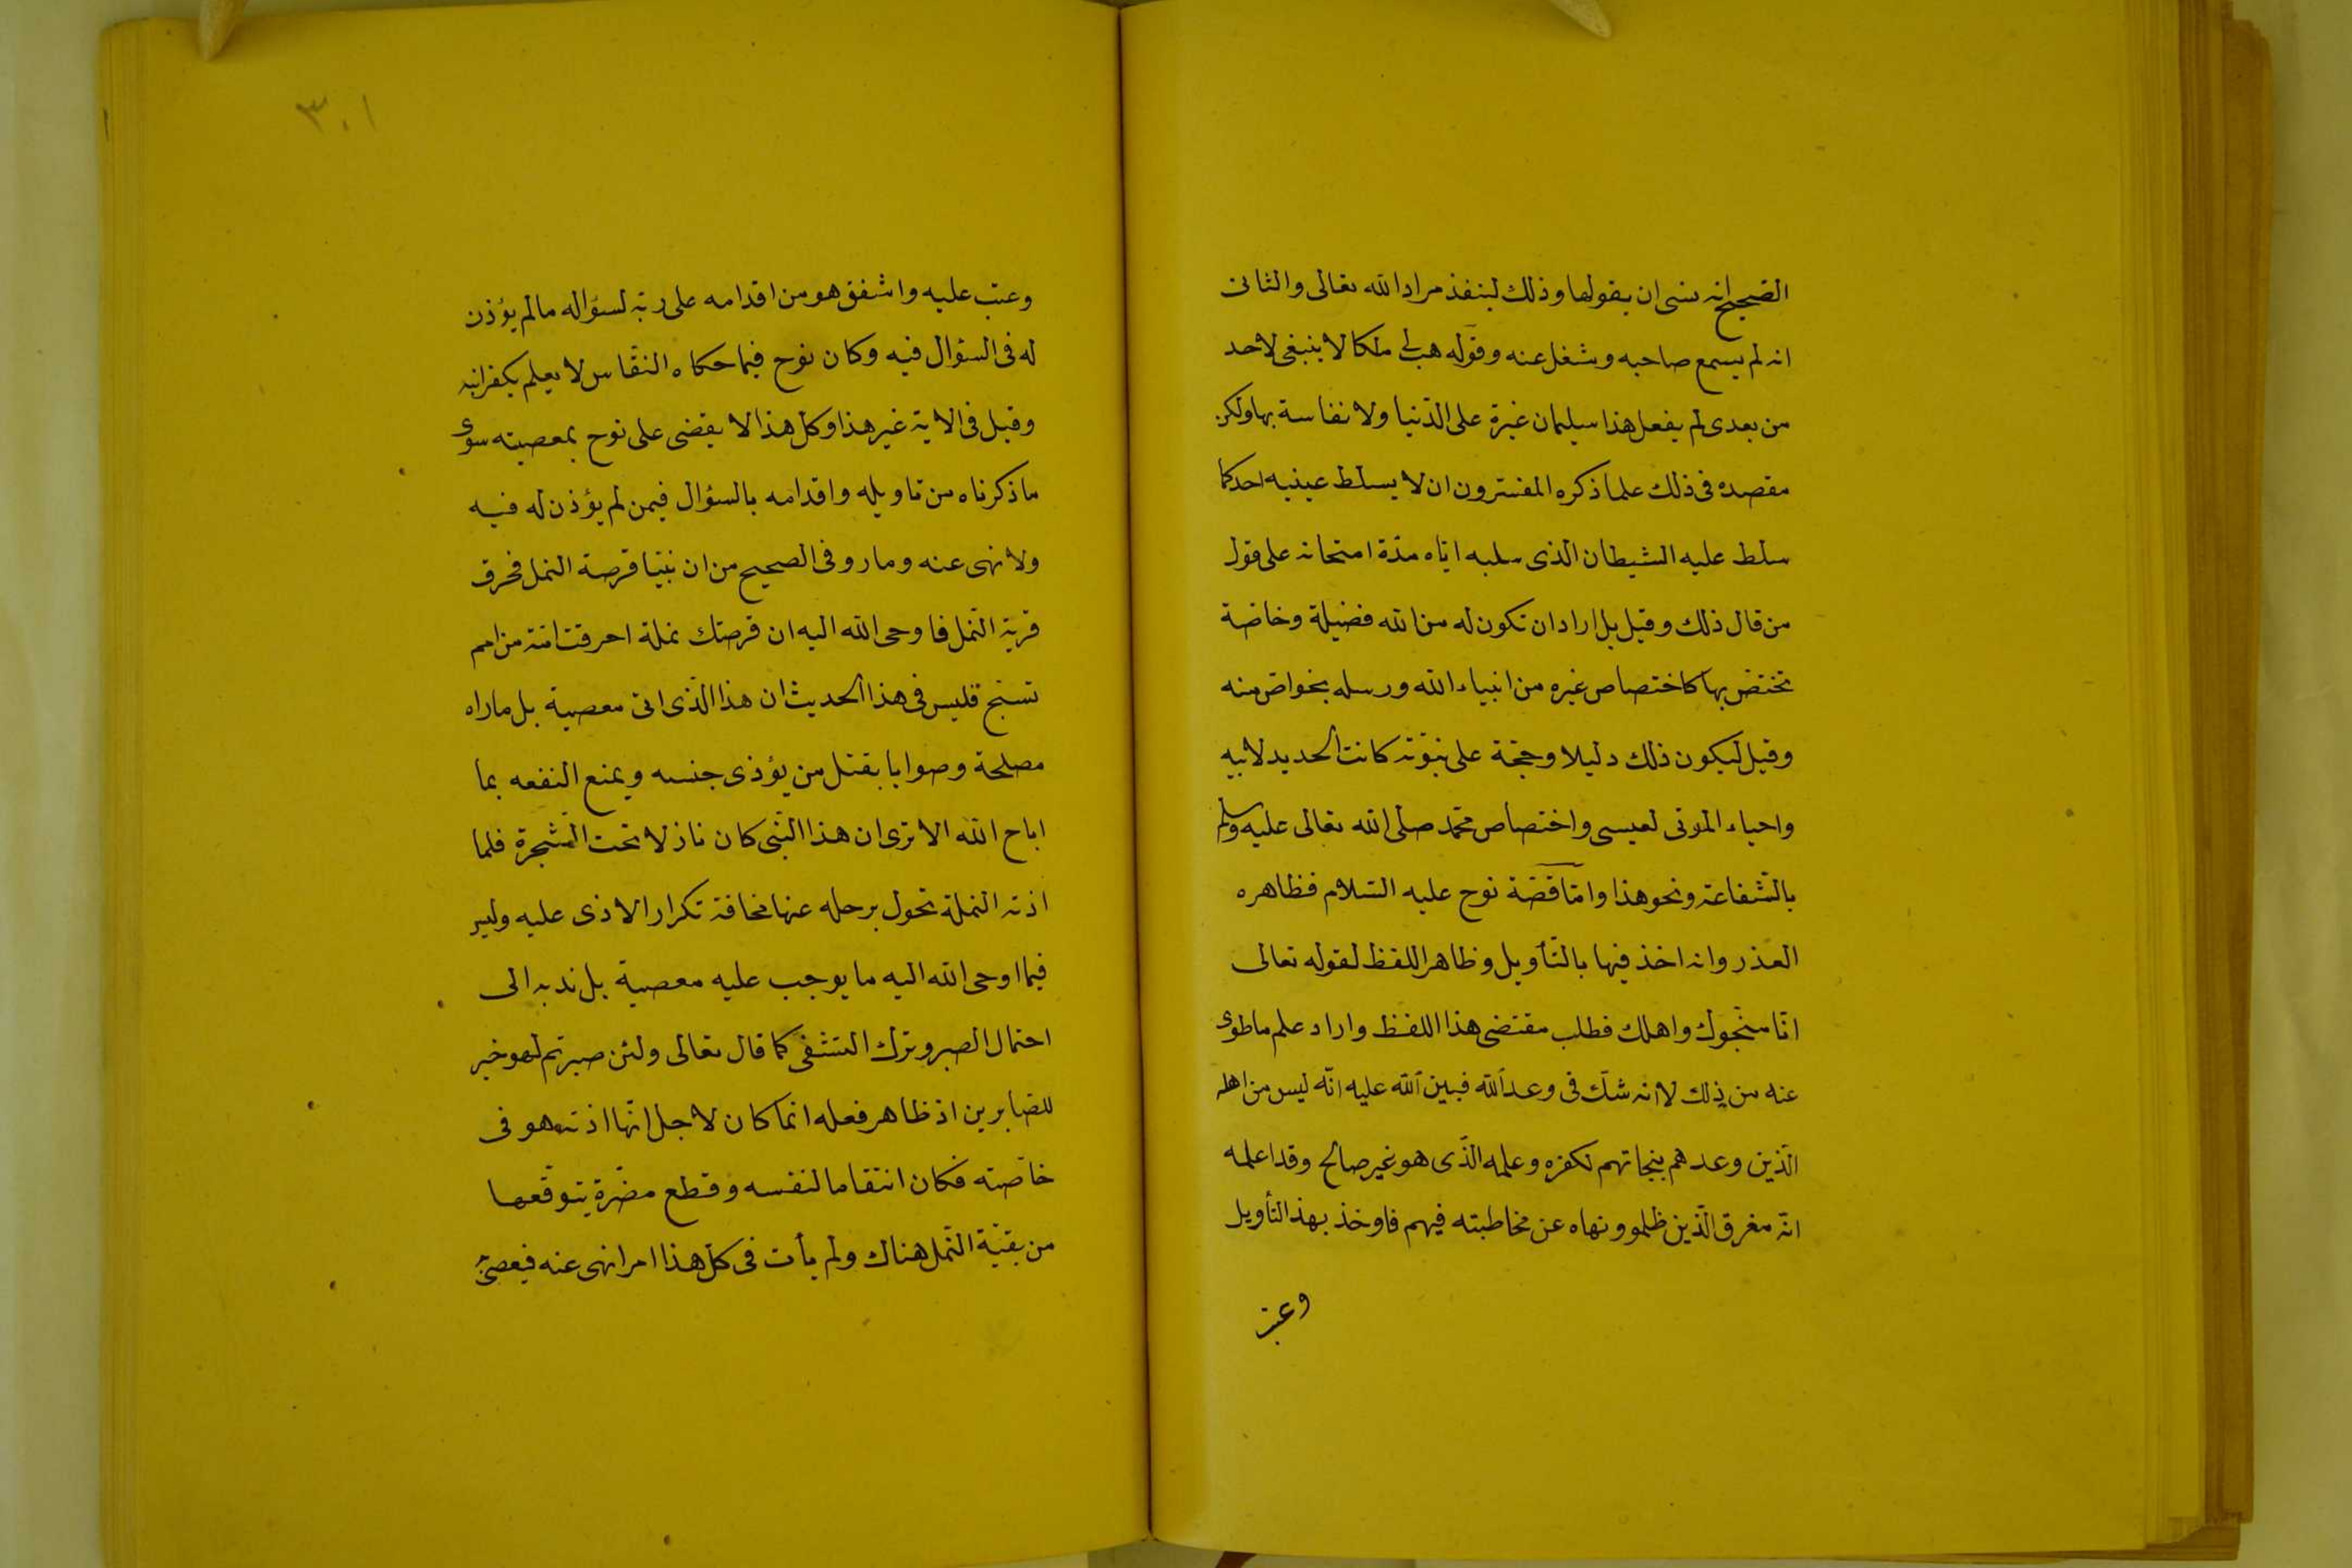 الصحيح انه نسى ان يقولها وذلك لينفذ مراد الله تعالى والثانى
انه لم يسمع صاحبه وشغل عنه وقوله هب لى ملكا لا ينبغى لاحد
من بعدى لم يفعل هذا سليمان غيرة على الدنيا ولا نفاسة بها ولكن
مقصده فى ذلك علما ذكره المفسرون ان لا يسلط عينيه احد كما
سلط عليه الشيطان الذى سلبه اياه مدة امتحانه على قول
من قال ذلك وقيل بل اراد ان تكون له من الله فضيلة وخاصة
تختص بها كاختصاص غيره من انبياء الله ورسله بخواص منه
وقيل ليكون ذلك دليلا وحجة على نبوته كانت الحديد لابيه
واحياء الموتى لعيسى واختصاص محمد صلى الله تعالى عليه وسلم
بالشفاعة ونحو هذا واما قصة نوح عليه السلام فظاهره
العذر وانه اخذ فيها بالتأويل وظاهر اللفظ لقوله تعالى
انا منجوك واهلك فطلب مقتضى هذا اللفظ واراد علم ما طوى
عنه من ذلك لا انه شك فى وعد الله فبين الله عليه انه ليس من اهله
الذين وعدهم بنجاتهم لكفره وعلمه الذى هو غير صالح وقد اعلمه
انه مغرق الذين ظلمو ونهاه عن مخاطبته فيهم فاوخذ بهذ التأويل
وعتب
٣٠١
وعتب عليه واشفق هو من اقدامه على ربه لسؤاله مالم يؤذن
له فى السؤال فيه وكان نوح فيما حكاه النقاس لا يعلم بكفر ابنه
وقيل فى الاية غير هذا وكل هذا لا يقضى على نوح بمعصيته سوى
ما ذكرناه من تاويله واقدامه بالسؤال فيمن لم يؤذن له فيه
ولا نهى عنه وما رو فى الصحيح من ان نبيا قرصة النمل فحرق
قرية النمل فاوحى الله اليه ان قرصتك نملة احرقت امة من امم
تسبح فليس فى هذا الحديث ان هذا الذى اتى معصية بل ما راه
مصلحة وصوابا بقتل من يؤذى جنسه ويمنع النفعه بما
اباح الله الا ترى ان هذا النبى كان نازلا تحت الشجرة فلما
اذته النملة تحول برحله عنها مخافة تكرار الاذى عليه وليس
فيما اوحى الله اليه ما يوجب عليه معصية بل ندبه الى
احتمال الصبر وترك التشفى كما قال تعالى ولئن صبرتم لهو خير
للصابرين اذ ظاهر فعله انما كان لاجل انها اذته هو فى
خاصته فكان انتقاما لنفسه وقطع مضرة يتوقعها
من بقية النمل هناك ولم يأت فى كل هذا امرا نهى عنه فيعصى به